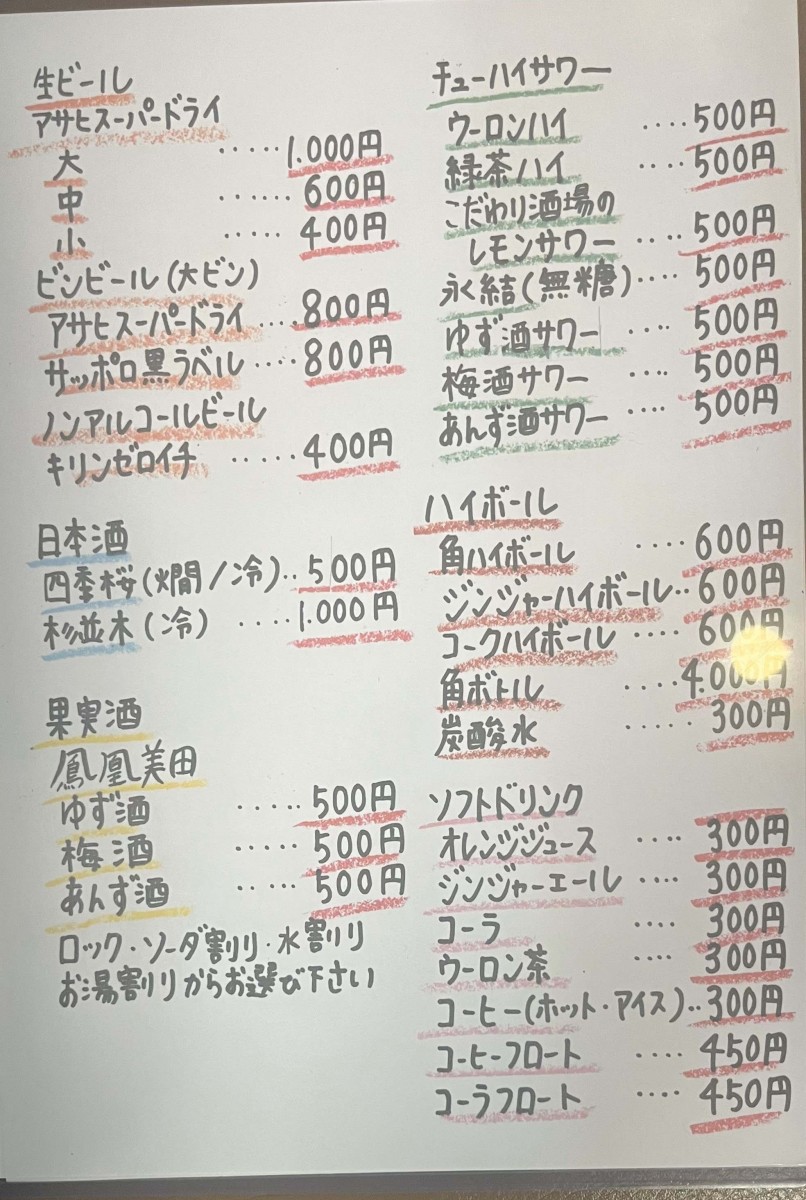 生ビール
アサヒスーパードライ
大 ‥‥‥ 1.000円
中 ‥‥‥ 600円
小 ‥‥‥ 400円
ビンビール(大ビン)
アサヒスーパードライ ‥‥ 800円
サッポロ黒ラベル ‥‥ 800円
ノンアルコールビール
キリンゼロイチ ‥‥‥ 400円
日本酒
四季桜(燗/冷)‥ 500円
杉並木(冷) ‥‥‥ 1.000円
果実酒
鳳凰美田
ゆず酒 ‥‥‥ 500円
梅酒 ‥‥‥ 500円
あんず酒 ‥‥‥ 500円
ロック・ソーダ割り・水割り
お湯割りからお選び下さい
チューハイサワー
ウーロンハイ ‥‥ 500円
緑茶ハイ ‥‥ 500円
こだわり酒場の
レモンサワー ‥‥ 500円
氷結(無糖)‥‥ 500円
ゆず酒サワー ‥‥ 500円
梅酒サワー ‥‥ 500円
あんず酒サワー ‥‥ 500円
ハイボール
角ハイボール ‥‥ 600円
ジンジャーハイボール‥ 600円
コークハイボール ‥‥ 600円
角ボトル ‥‥ 4.000円
炭酸水 ‥‥‥ 300円
ソフトドリンク
オレンジジュース ‥‥ 300円
ジンジャーエール ‥‥ 300円
コーラ ‥‥ 300円
ウーロン茶 ‥‥ 300円
コーヒー(ホット・アイス)‥ 300円
コーヒーフロート ‥‥ 450円
コーラフロート ‥‥ 450円